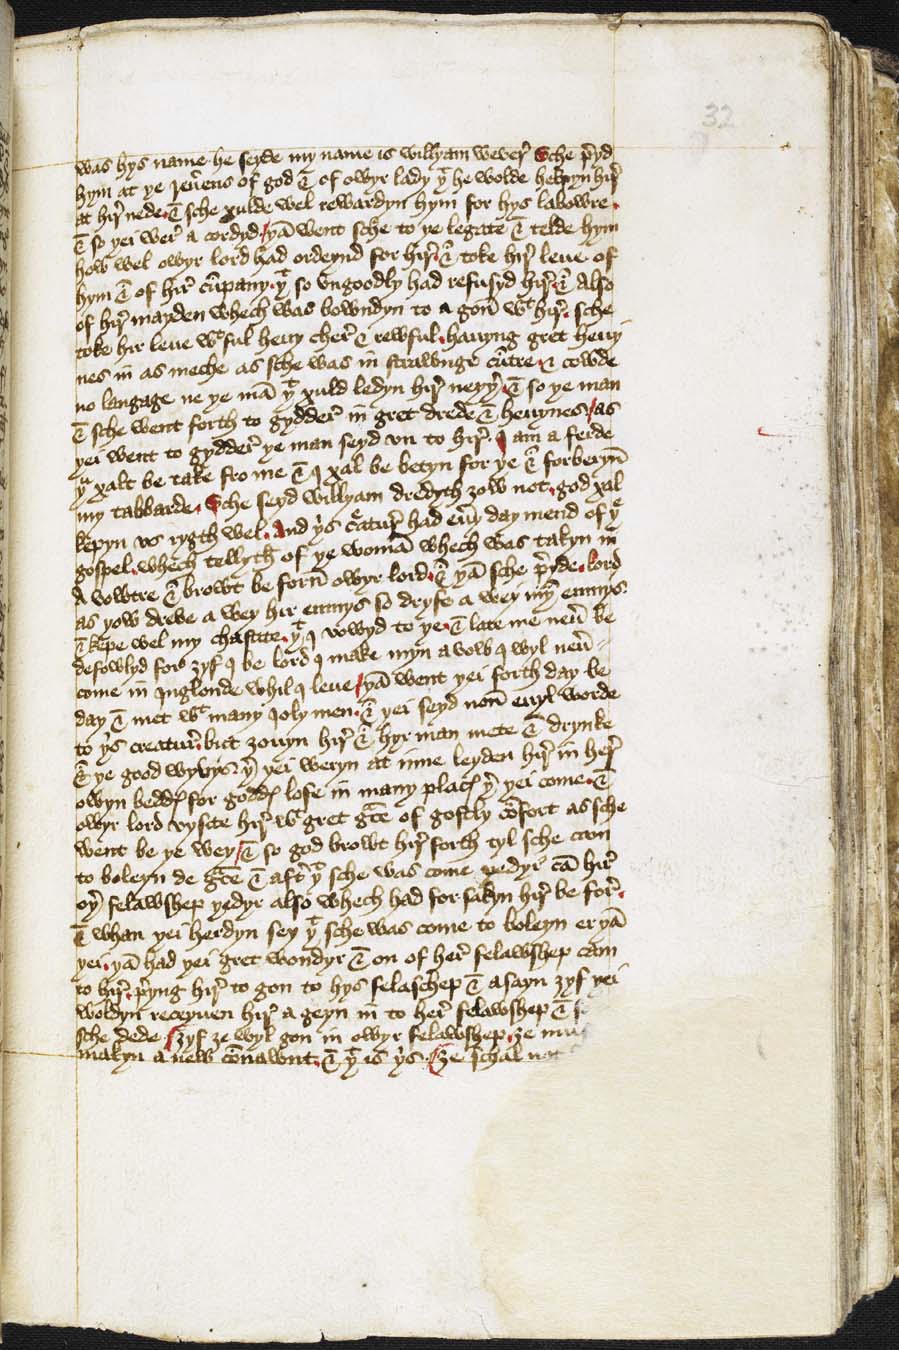 32
was hys name he seyde my name is willyam weuer̉ Sche p̉yd
hym at ye reuẽens of god & of owyr lady yͭ he wolde helpyn hir̉
at hir̉ nede. & sche xulde wel rewardyn hym for hys labowre.
& so yei wer̉ a cordyd. / yā went sche to ye legate & telde hym
how wel owyr lord had ordeynd for hir̉. & toke hir̉ leue of
hym & of hir̉ cūpany. yͭ so vngoodly had refusyd hir̉. & Also
of hir̉ mayden whech was bowndyn to a gon̄ wͭ hir̉. sche
toke hir leue wͭ ful heuy cher̉ & rewful. hauyng gret heuy
nes in as meche as sche was in strawnge cūtre. & cowde
no langage ne ye mā yͭ xuld ledyn hir̉ neyỷ. & so ye man
& sche went forth to gydder̉ in gret drede & heuynes. / as
yei went to gydder̉ ye man seyd vn to hir̉. I am a ferde
yͧ xalt be take fro me & I xal be betyn for ye & forberyn̄
my tabbarde. Sche seyd willyam dredyth zow not. god xal
kepyn vs rygth wel. And ỷs creatur̉ had eūy day mend of yͤ
gospel. whech tellyth of ye womā whech was takyn in
A vowtre & browt be forn̄ owyr lord. & yā sche p̉yde. lord
as yow dreve a wey hir enmys so dryfe a wey myn̄ enmys.
& kepe wel my chastite. yͭ I vowyd to ye. & late me neū be
defowlyd for zyf I be lord I make myn a vow I wyl neū
come in Inglonde whil I leue / yā went yei forth day be
day & met wͭ many Ioly men. & yei seyd non̄ euyl worde
to ỷs creatur̉. but zouyn hir̉ & hyr man mete & drynke
& ye good wyuys. ỷ yei weryn at inne leyden hir̉ in her̉
owyn bedd̛ for godd̛ lofe in many plac̛ ỷ yei come. &
owyr lord vysite hir̉ wͭ gret gc̄e of gostly cōfort as sche
went be ye wey / & so god browt hir̉ forth tyl sche cam
to boleyn de gc̄e & aft̉ yͭ sche was come yedyr̉ cā hir̉
oỷ felawshep yedyr also whech had for sakyn hir̉ be for̉.
& whan yei herdyn sey yͭ sche was come to boleyn er yā
yei. yā had yei gret wondyr & on of her̉ felawshep cam
to hir̉. p̉yng hir̉ to gon to hys felaschep & asayn zyf yei
woldyn receyuen hir̉ a geyn in to her̉ felawshep &
sche dede. / zyf ze wyl gon in owyr felawshep. ze
makyn a new cōnawnt. & yͭ is ỷs. / ze schal not